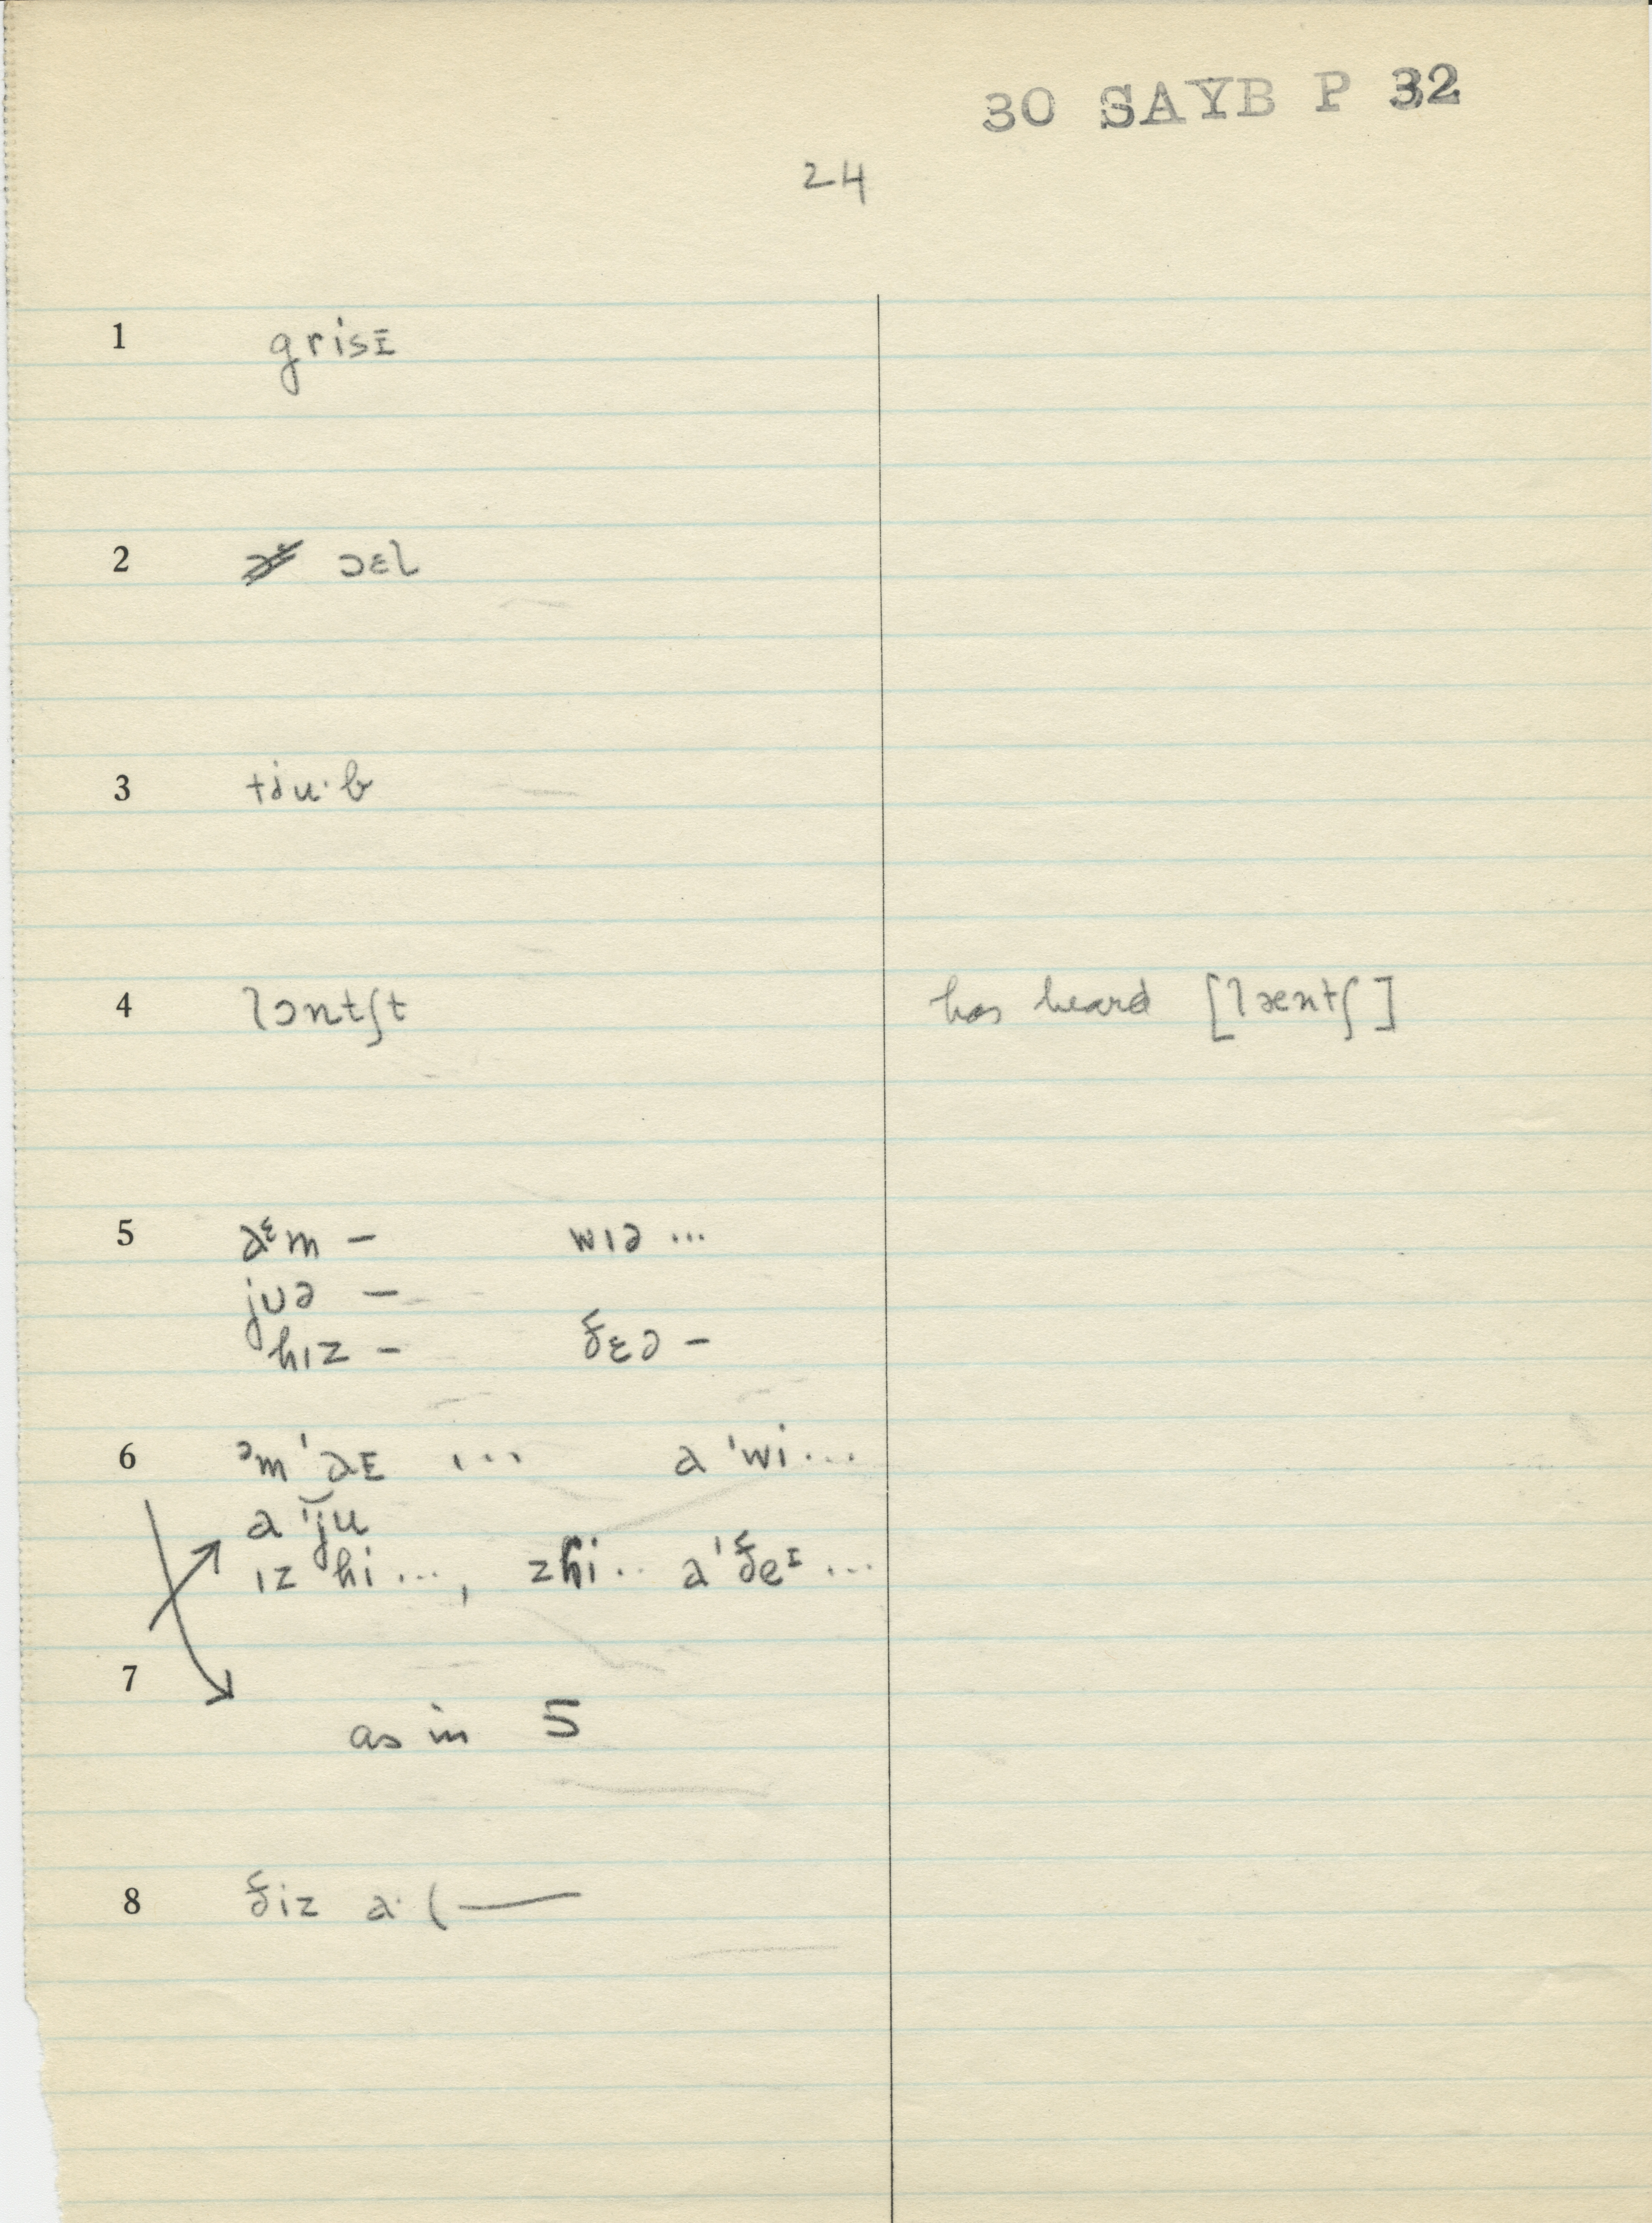 30 SAYB P 32
24
1 grisɪ
2 ɔɛl
3 tɨu·b
4 lɔntʃt has heard [læntʃ]
5 aᵋm – wɪə ...
jʊə –
hɪz – ðɛə –
6 ᵊm ˈaɪ ... a ˈwi ...
a ˈju
ɪz hi ..., zhi .. a ˈðeᶦ ...
7 as in 5
8 ðiz a· ( —